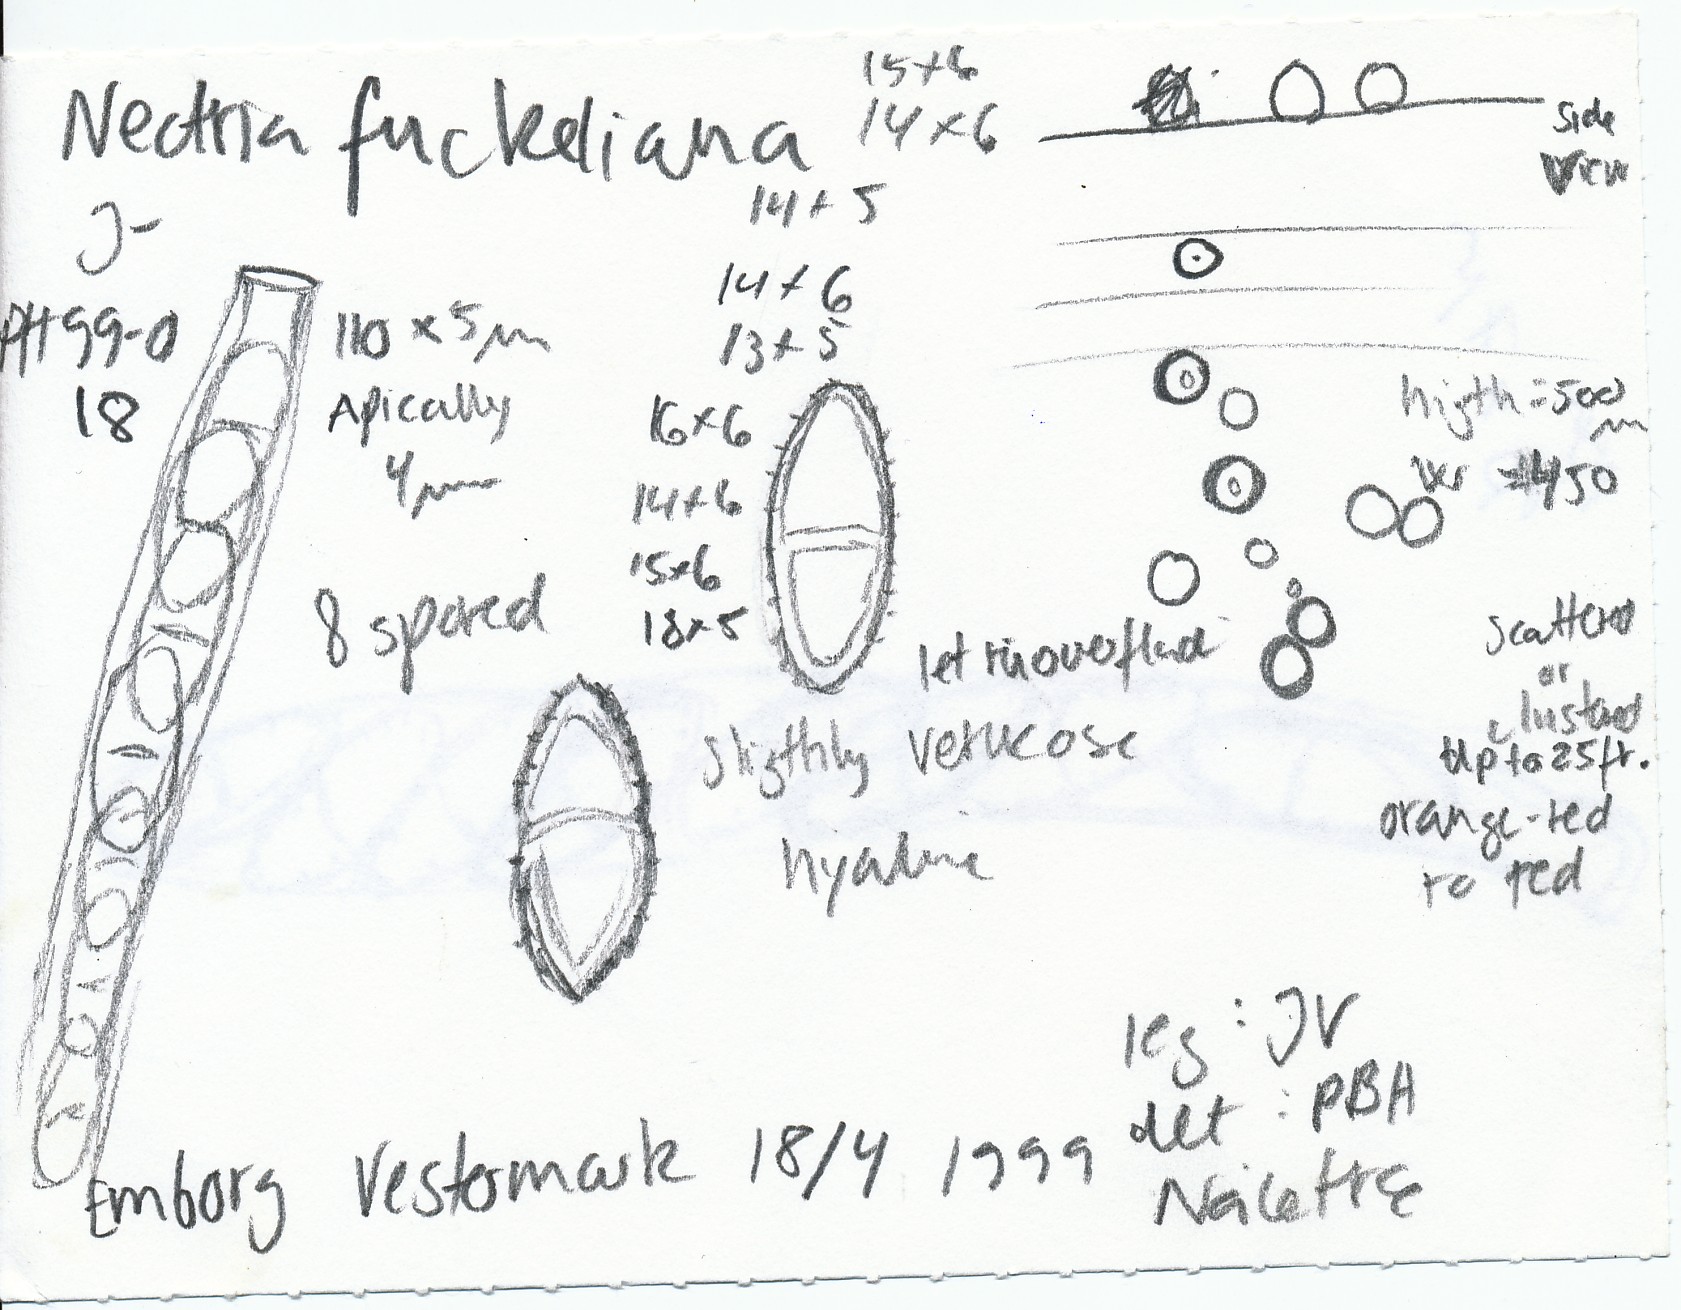 Nectria fuckeliana
J-
PH99-0
18
110 x 5 µm
Apically
4 µm
8 spored
15 x 6
14 x 6
14 x 5
14 x 6
13 x 5
16 x 6
14 x 6
15 x 6
18 x 5
Side
View
higth = 500
µm
450
let
Sligthly verucose
hyaline
Scattered
or
clustered
Up to 25 fr.
orange-red
to red
leg: JV
det: PBH
Emborg Vestermark 18/4 1999